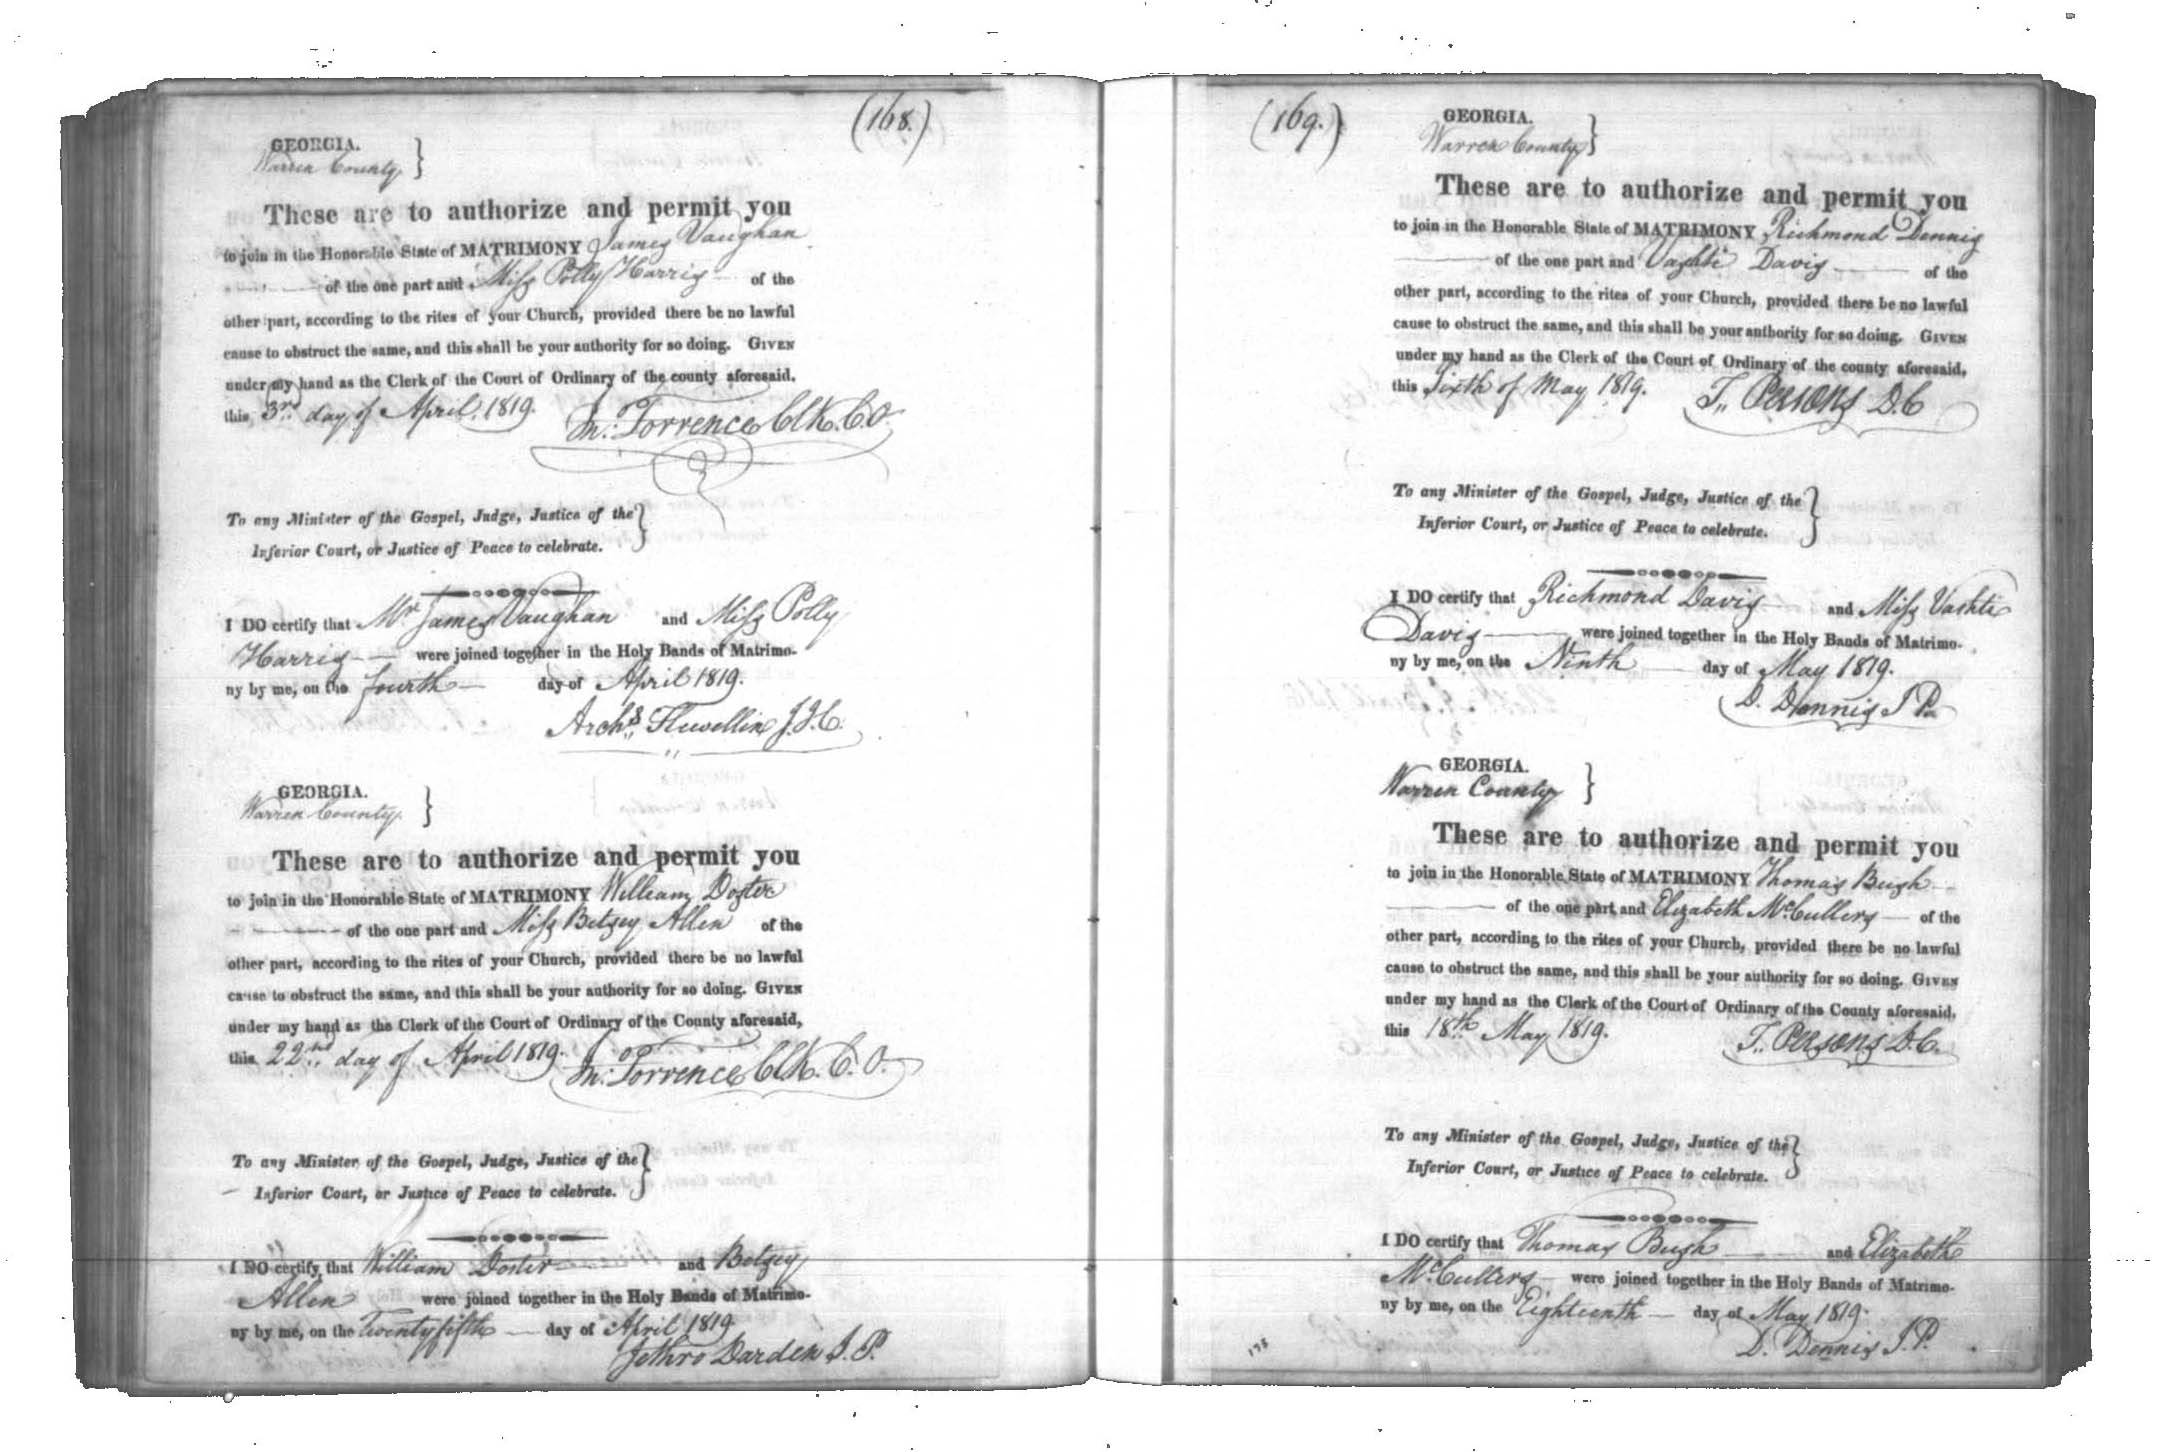 (168.)
GEORGIA.
Warren County. }
These are to authorize and permit you
to join in the Honorable State of MATRIMONY James Vaughan
of the one part and Miss Polly Harris of the
other part, according to the rites of your Church, provided there be no lawful
cause to obstruct the same, and this shall be your authority for so doing. GIVEN
under my hand as the Clerk of the Court of Ordinary of the county aforesaid,
this 3rd day of April, 1819. Jn: Torrence Clk. C. O.
To any Minister of the Gospel, Judge, Justice of the }
Inferior Court, or Justice of Peace to celebrate.
I DO certify that Mr James Vaughan and Miss Polly
Harris were joined together in the Holy Bands of Matrimo-
ny by me, on the fourth day of April 1819.
Archs. Flewellin J.I.C.
GEORGIA.
Warren County. }
These are to authorize and permit you
to join in the Honorable State of MATRIMONY William Doster
of the one part and Miss Betsey Allen of the
other part, according to the rites of your Church, provided there be no lawful
cause to obstruct the same, and this shall be your authority for so doing. GIVEN
under my hand as the Clerk of the Court of Ordinary of the County aforesaid,
this 22nd day of April 1819. Jn: Torrence Clk. C. O.
To any Minister of the Gospel, Judge, Justice of the }
Inferior Court, or Justice of Peace to celebrate.
I DO certify that William Doster and Betsey
Allen were joined together in the Holy Bands of Matrimo-
ny by me, on the Twenty fifth day of April 1819
Jethro Darden J. P.
(169.)
GEORGIA.
Warren County }
These are to authorize and permit you
to join in the Honorable State of MATRIMONY Richmond Dennis
of the one part and Vashti Davis of the
other part, according to the rites of your Church, provided there be no lawful
cause to obstruct the same, and this shall be your authority for so doing. GIVEN
under my hand as the Clerk of the Court of Ordinary of the county aforesaid,
this Sixth of May 1819. T. Persons D.C
To any Minister of the Gospel, Judge, Justice of the }
Inferior Court, or Justice of Peace to celebrate.
I DO certify that Richmond Davis and Miss Vashti
Davis were joined together in the Holy Bands of Matrimo-
ny by me, on the Ninth day of May 1819.
D. Dennis J P.
GEORGIA.
Warren County }
These are to authorize and permit you
to join in the Honorable State of MATRIMONY Thomas Bush
of the one part and Elizabeth McCullers of the
other part, according to the rites of your Church, provided there be no lawful
cause to obstruct the same, and this shall be your authority for so doing. GIVEN
under my hand as the Clerk of the Court of Ordinary of the County aforesaid,
this 18th May 1819. T. Persons D.C.
To any Minister of the Gospel, Judge, Justice of the }
Inferior Court, or Justice of Peace to celebrate.
I DO certify that Thomas Bush and Elizabeth
McCullers were joined together in the Holy Bands of Matrimo-
ny by me, on the Eighteenth day of May 1819.
D. Dennis J.P.